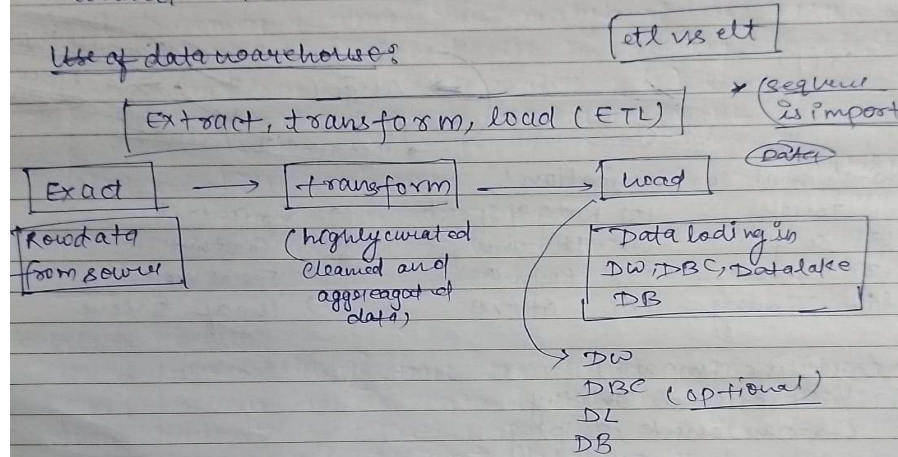 Use of data warehouse:
etl vs elt
Extract, transform, load (ETL)
* (sequence
is import
Data
Exact → transform → Load
Rowdata
from source
(highly curated
cleaned and
aggreagated
data)
Data loding in
DW, DBC, Datalake
DB
DW
DBC (optional)
DL
DB